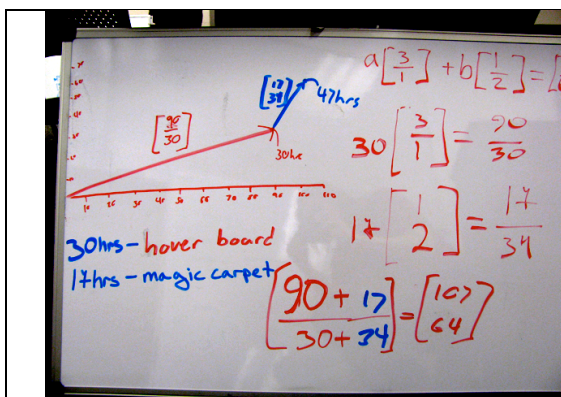 a[3/1] + b[1/2] = [
[17/34] 47hrs
[90/30]
30hrs
30[3/1] = 90/30
17[1/2] = 17/34
10 20 30 40 50 60 70 80 90
30hrs - hover board
17hrs - magic carpet
[90 + 17 / 30 + 34] = [107 / 64]